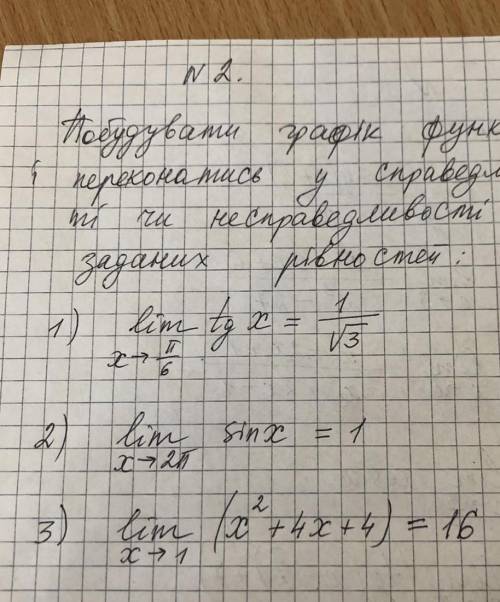 N 2.
Побудувати графік функ
і переконатись у справедл
ті чи несправедливості
заданих рівностей:
1) lim tg x = 1/√3
x→π/6
2) lim sinx = 1
x→2π
3) lim (x² + 4x + 4) = 16
x→1